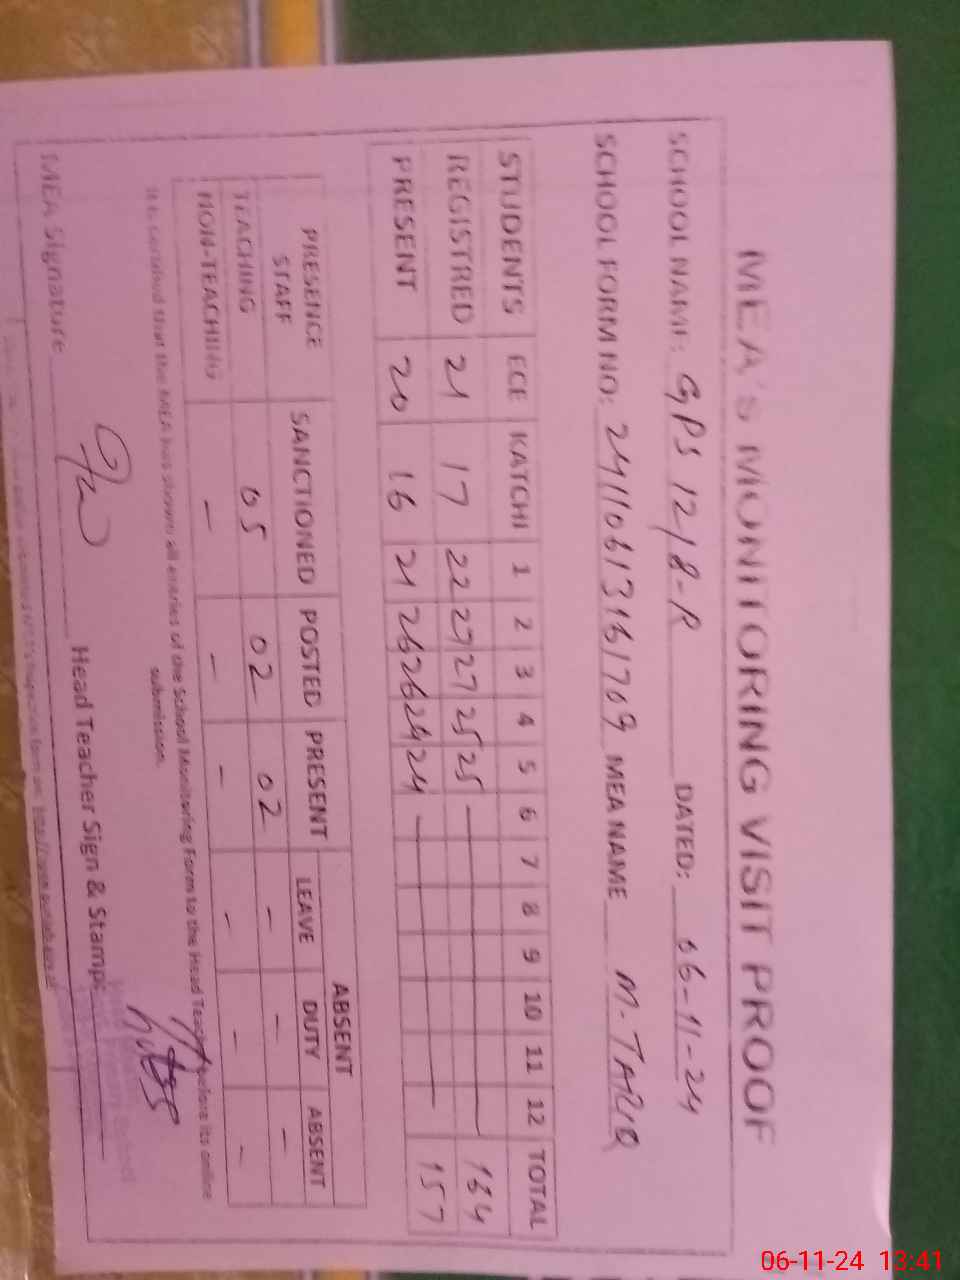 MEA'S MONITORING VISIT PROOF
SCHOOL NAME: GPS 12/8-R DATED: 06-11-24
SCHOOL FORM NO: 24110613161709 MEA NAME M-TARIQ
STUDENTS ECE KATCHI 1 2 3 4 5 6 7 8 9 10 11 12 TOTAL
REGISTRED 21 17 22 27 27 25 25 — 164
PRESENT 20 16 21 26 26 24 24 — 157
PRESENCE STAFF SANCTIONED POSTED PRESENT ABSENT
LEAVE DUTY ABSENT
TEACHING 05 02 02 - - -
NON-TEACHING - - - - - -
It is certified that the MEA has shown all entries of the School Monitoring Form to the Head Teacher before its online
submission.
MEA Signature Head Teacher Sign & Stamp:
06-11-24 13:41